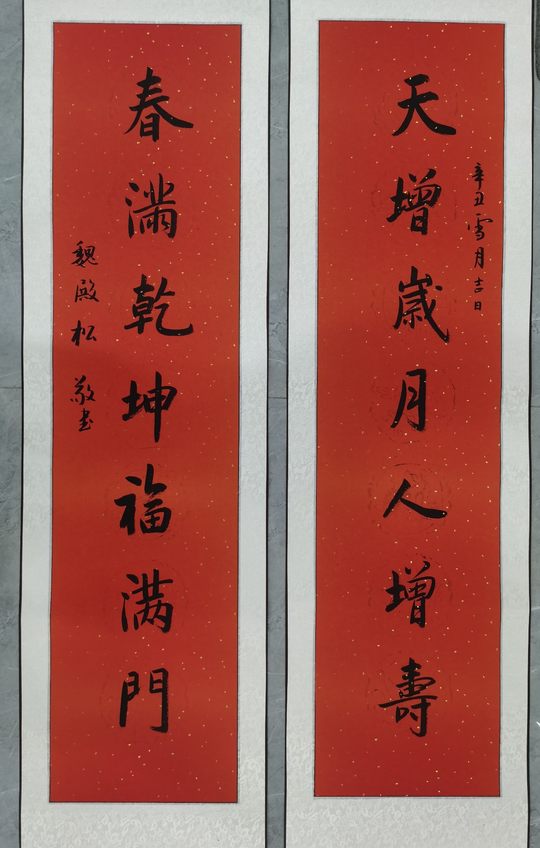 辛丑雪月吉日
天增歲月人增壽
春滿乾坤福满門
魏殿松 敬书